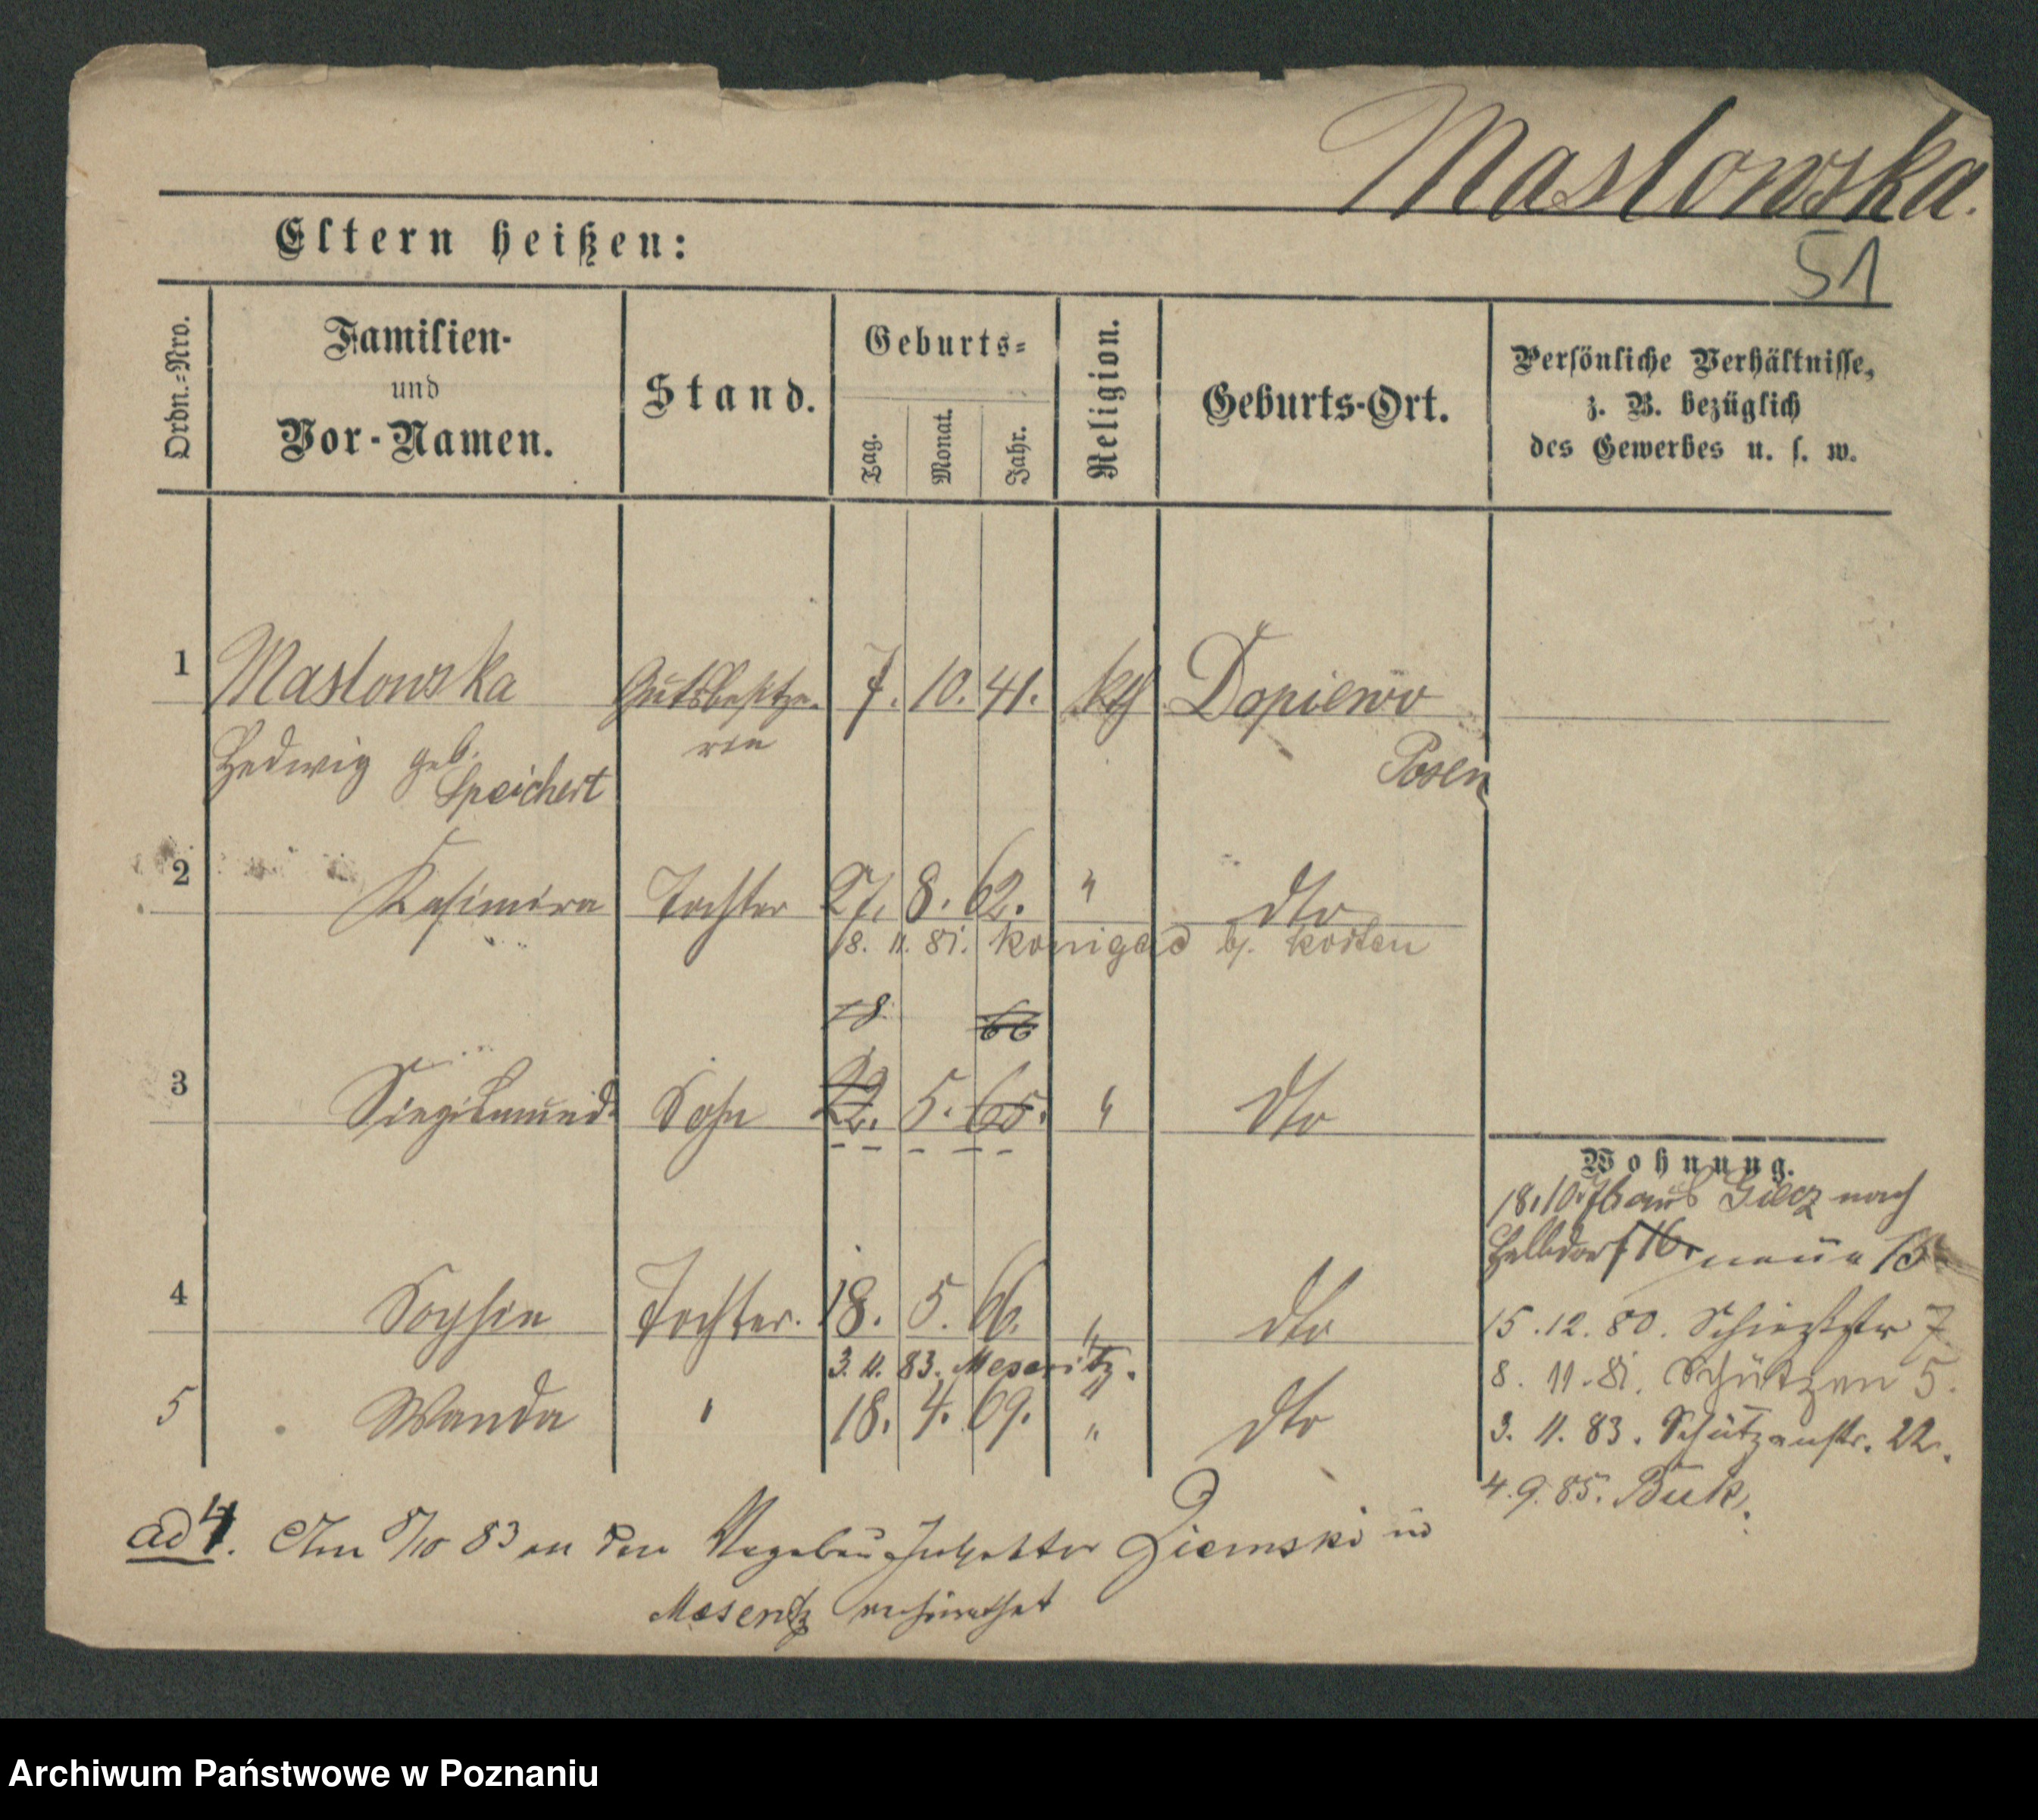 Maslowska.
51
Eltern heißen:
Ordn.=Nro.
Familien-
und
Vor-Namen.
Stand.
Geburts=
Tag.
Monat.
Jahr.
Religion.
Geburts-Ort.
Persönliche Verhältnisse,
z. B. bezüglich
des Gewerbes u. s. w.
1 Maslowska Gutsbesitze- 7. 10. 41. kth Dopiewo
rin
Hedwig geb. Posen
Speichert
2 Kasimira Tochter 27. 8. 62. " dto
8. 11. 81. Konigad b/. Kosten
18. 66
3 Siegismund Sohn 22. 5. 65. " dto
Wohnung.
18.10.76 aus Giecz nach
Halbdorf 16. neue 15
4 Sophie Tochter. 18. 5. 66. " dto
15.12.80. Schießstr 7
3. 11. 83. Meseritz. "
8. 11. 81. Schützen 5.
5 Wanda " 18. 4. 69. " dto
3. 11. 83. Schützenstr. 22.
4. 9. 85. Buk.
ad 4. Am 8/10 83 an den Wegebau Inspektor Ziemski in
Meseritz verheirathet
Archiwum Państwowe w Poznaniu